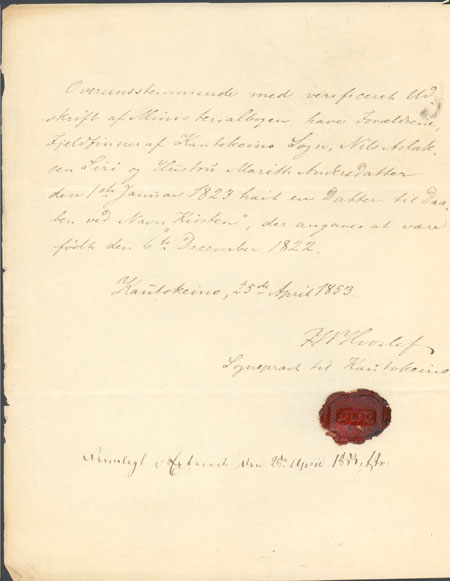 Overeensstemmende med verificeret Ud
skrift af Ministerialbogen have Forældrene,
Fjeldfinner af Kautokeino Sogn, Nils Aslak
sen Siri og Hustru Marith Andersdatter
den 1ste Januar 1823 havt en Datter til Daa-
ben ved Navn "Kirsten", der angaves at være
født den 6te December 1822.
Kautokeino, 25de April 1853.
Hvoslef
Sognepræst til Kautokeino
Fremlagt i Extraret den 25de April 1853,